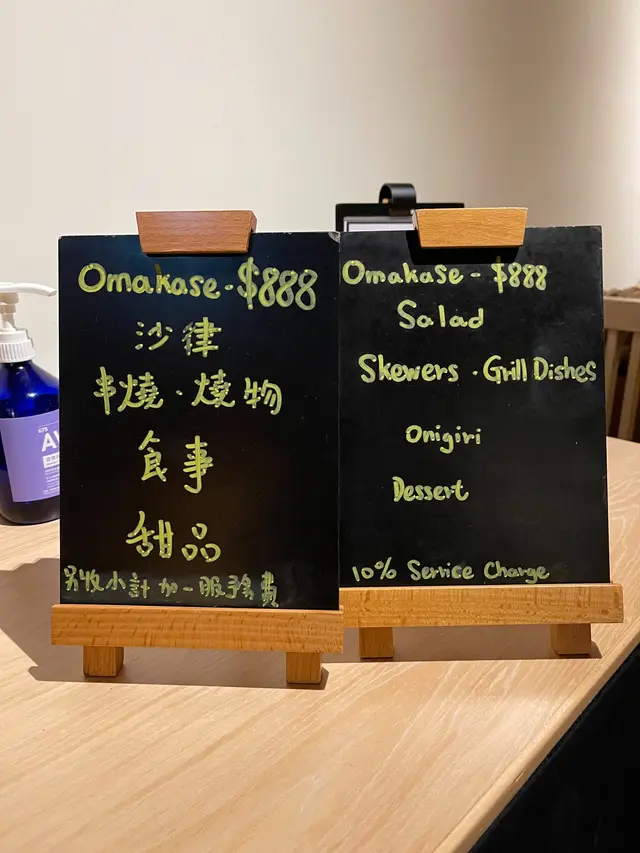 Omakase - $888
沙律
串燒 · 燒物
食事
甜品
另收小計加一服務費
Omakase - $888
Salad
Skewers · Grill Dishes
Onigiri
Dessert
10% Service Charge